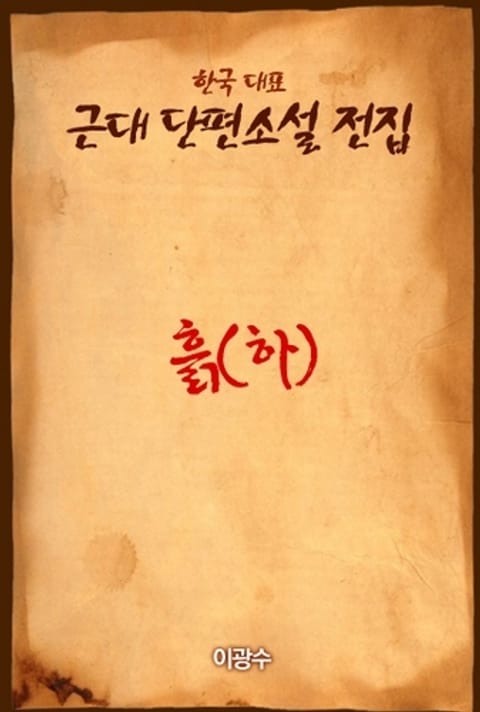 한국 대표
근대 단편소설 전집
흙(하)
이광수